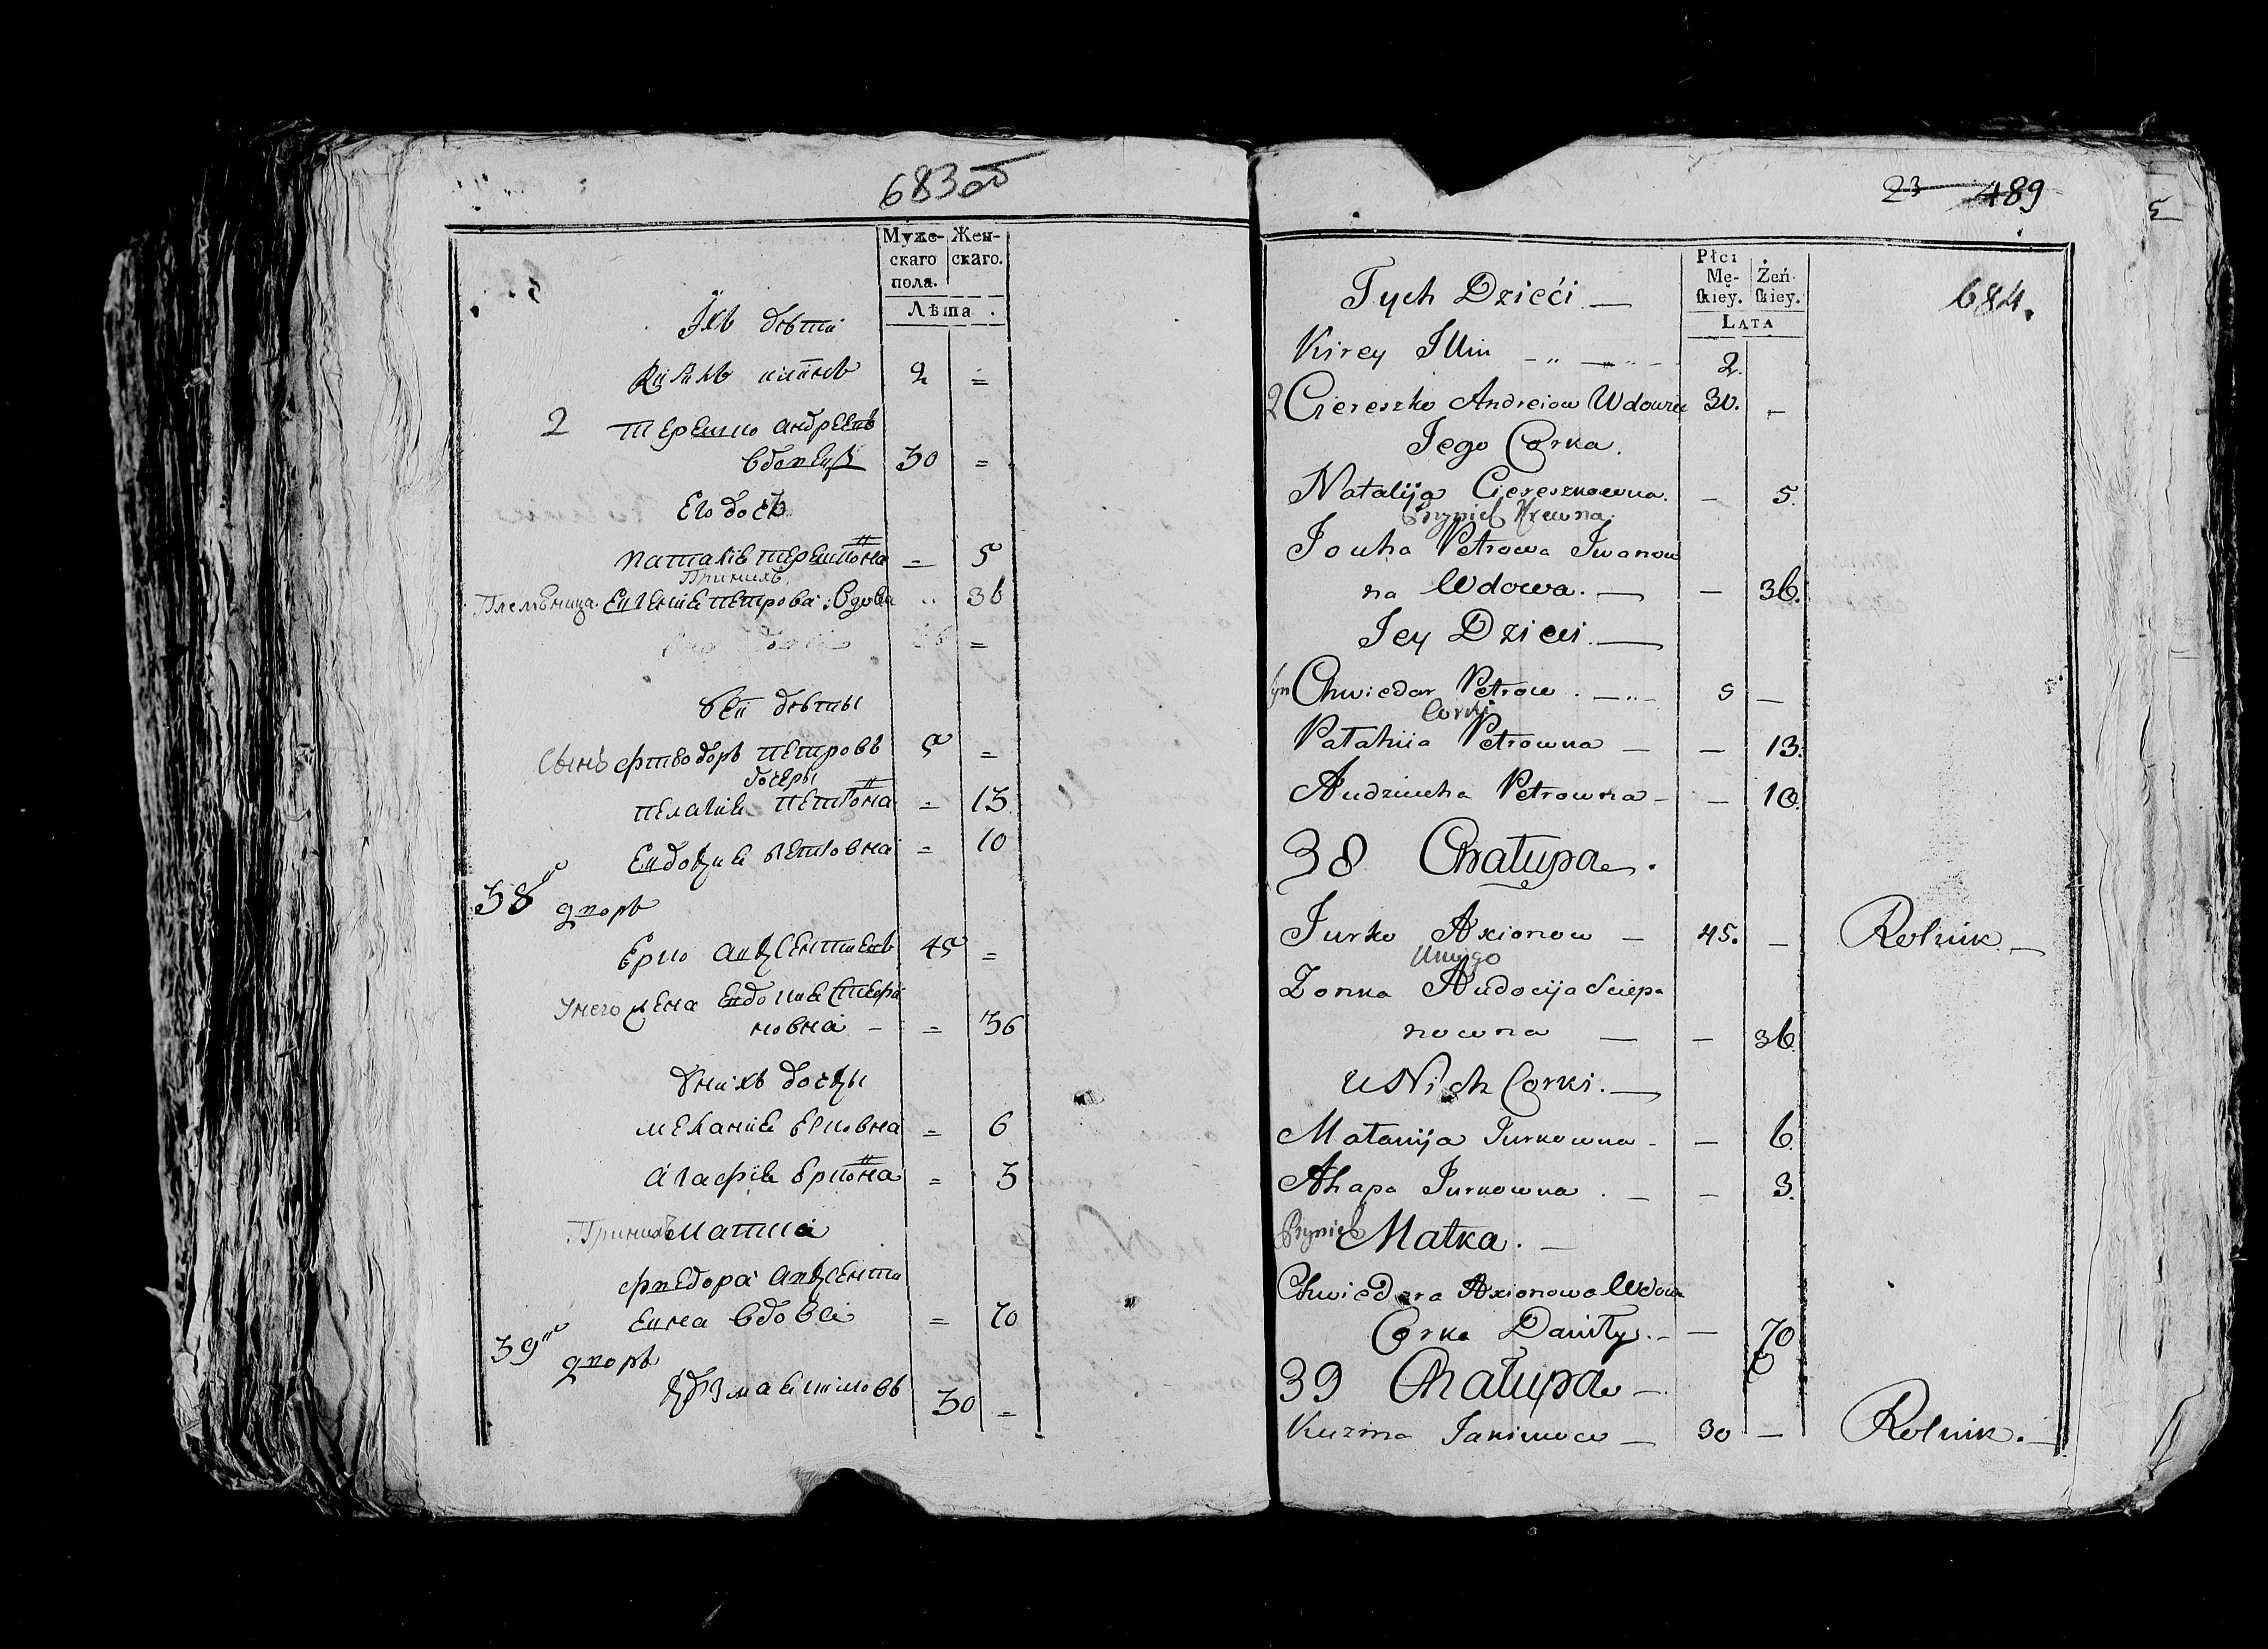 683об
Муже-
скаго
пола.
Жен-
скаго.
Лѣта
Ихъ дѣти
Кирилъ илiинъ 2 =
2 Терешко андреевъ
вдовецъ 30 =
Его дочь
наталiя терешковна = 5
Принялъ
Племѣнница. Евгениiя петрова: Вдова 36
=
Ѣей дѣти
Сынъ фтеодоръ петровъ 5 =
дочеры
пелагия петровна = 13
Евдокия петровна = 10
38й дворъ
Ерко авксентиевъ 45 =
Унего жена Евдокия Стефа
новна - = 36
Унихъ дочки
мелания ерковна = 6
агафiя ерковна = 3
Принялъ матка
фведора авксенти
евна вдова = 70
39й дворъ
Кузма акимовъ 30 =
23 489
684.
Płci
Mę-
skiey.
Żeń-
skiey.
LATA
Tych Dzieći —
Kirey Illin 2.
2 Ciereszko Andreiow Wdowiec 30. —
Jego Corka.
Natalija Ciereszkowna. — 5.
Przyniel Krewna.
Jouha Petrowa Iwanow
na Wdowa. — — 36.
Jey Dzieci. —
Syn Chwiedor Petrow. — 5 —
Corki
Pałahiia Petrowna — — 13.
Audziucha Petrowna — — 10.
38 Chałupa.
Jurko Axionow — 45. — Rolnik. —
U niego
Zonka Audocija Sciepa
nowna — — 36.
U Nich Corki. —
Małanija Jurkowna — — 6.
Ahapa Jurkowna. — — 3.
Przyniel Matka. —
Chwiedora Axionowa Wdowa
Corka Daniły. — — 70
39 Chałupa —
Kuzma Jakimow — 30 — Rolnik. —